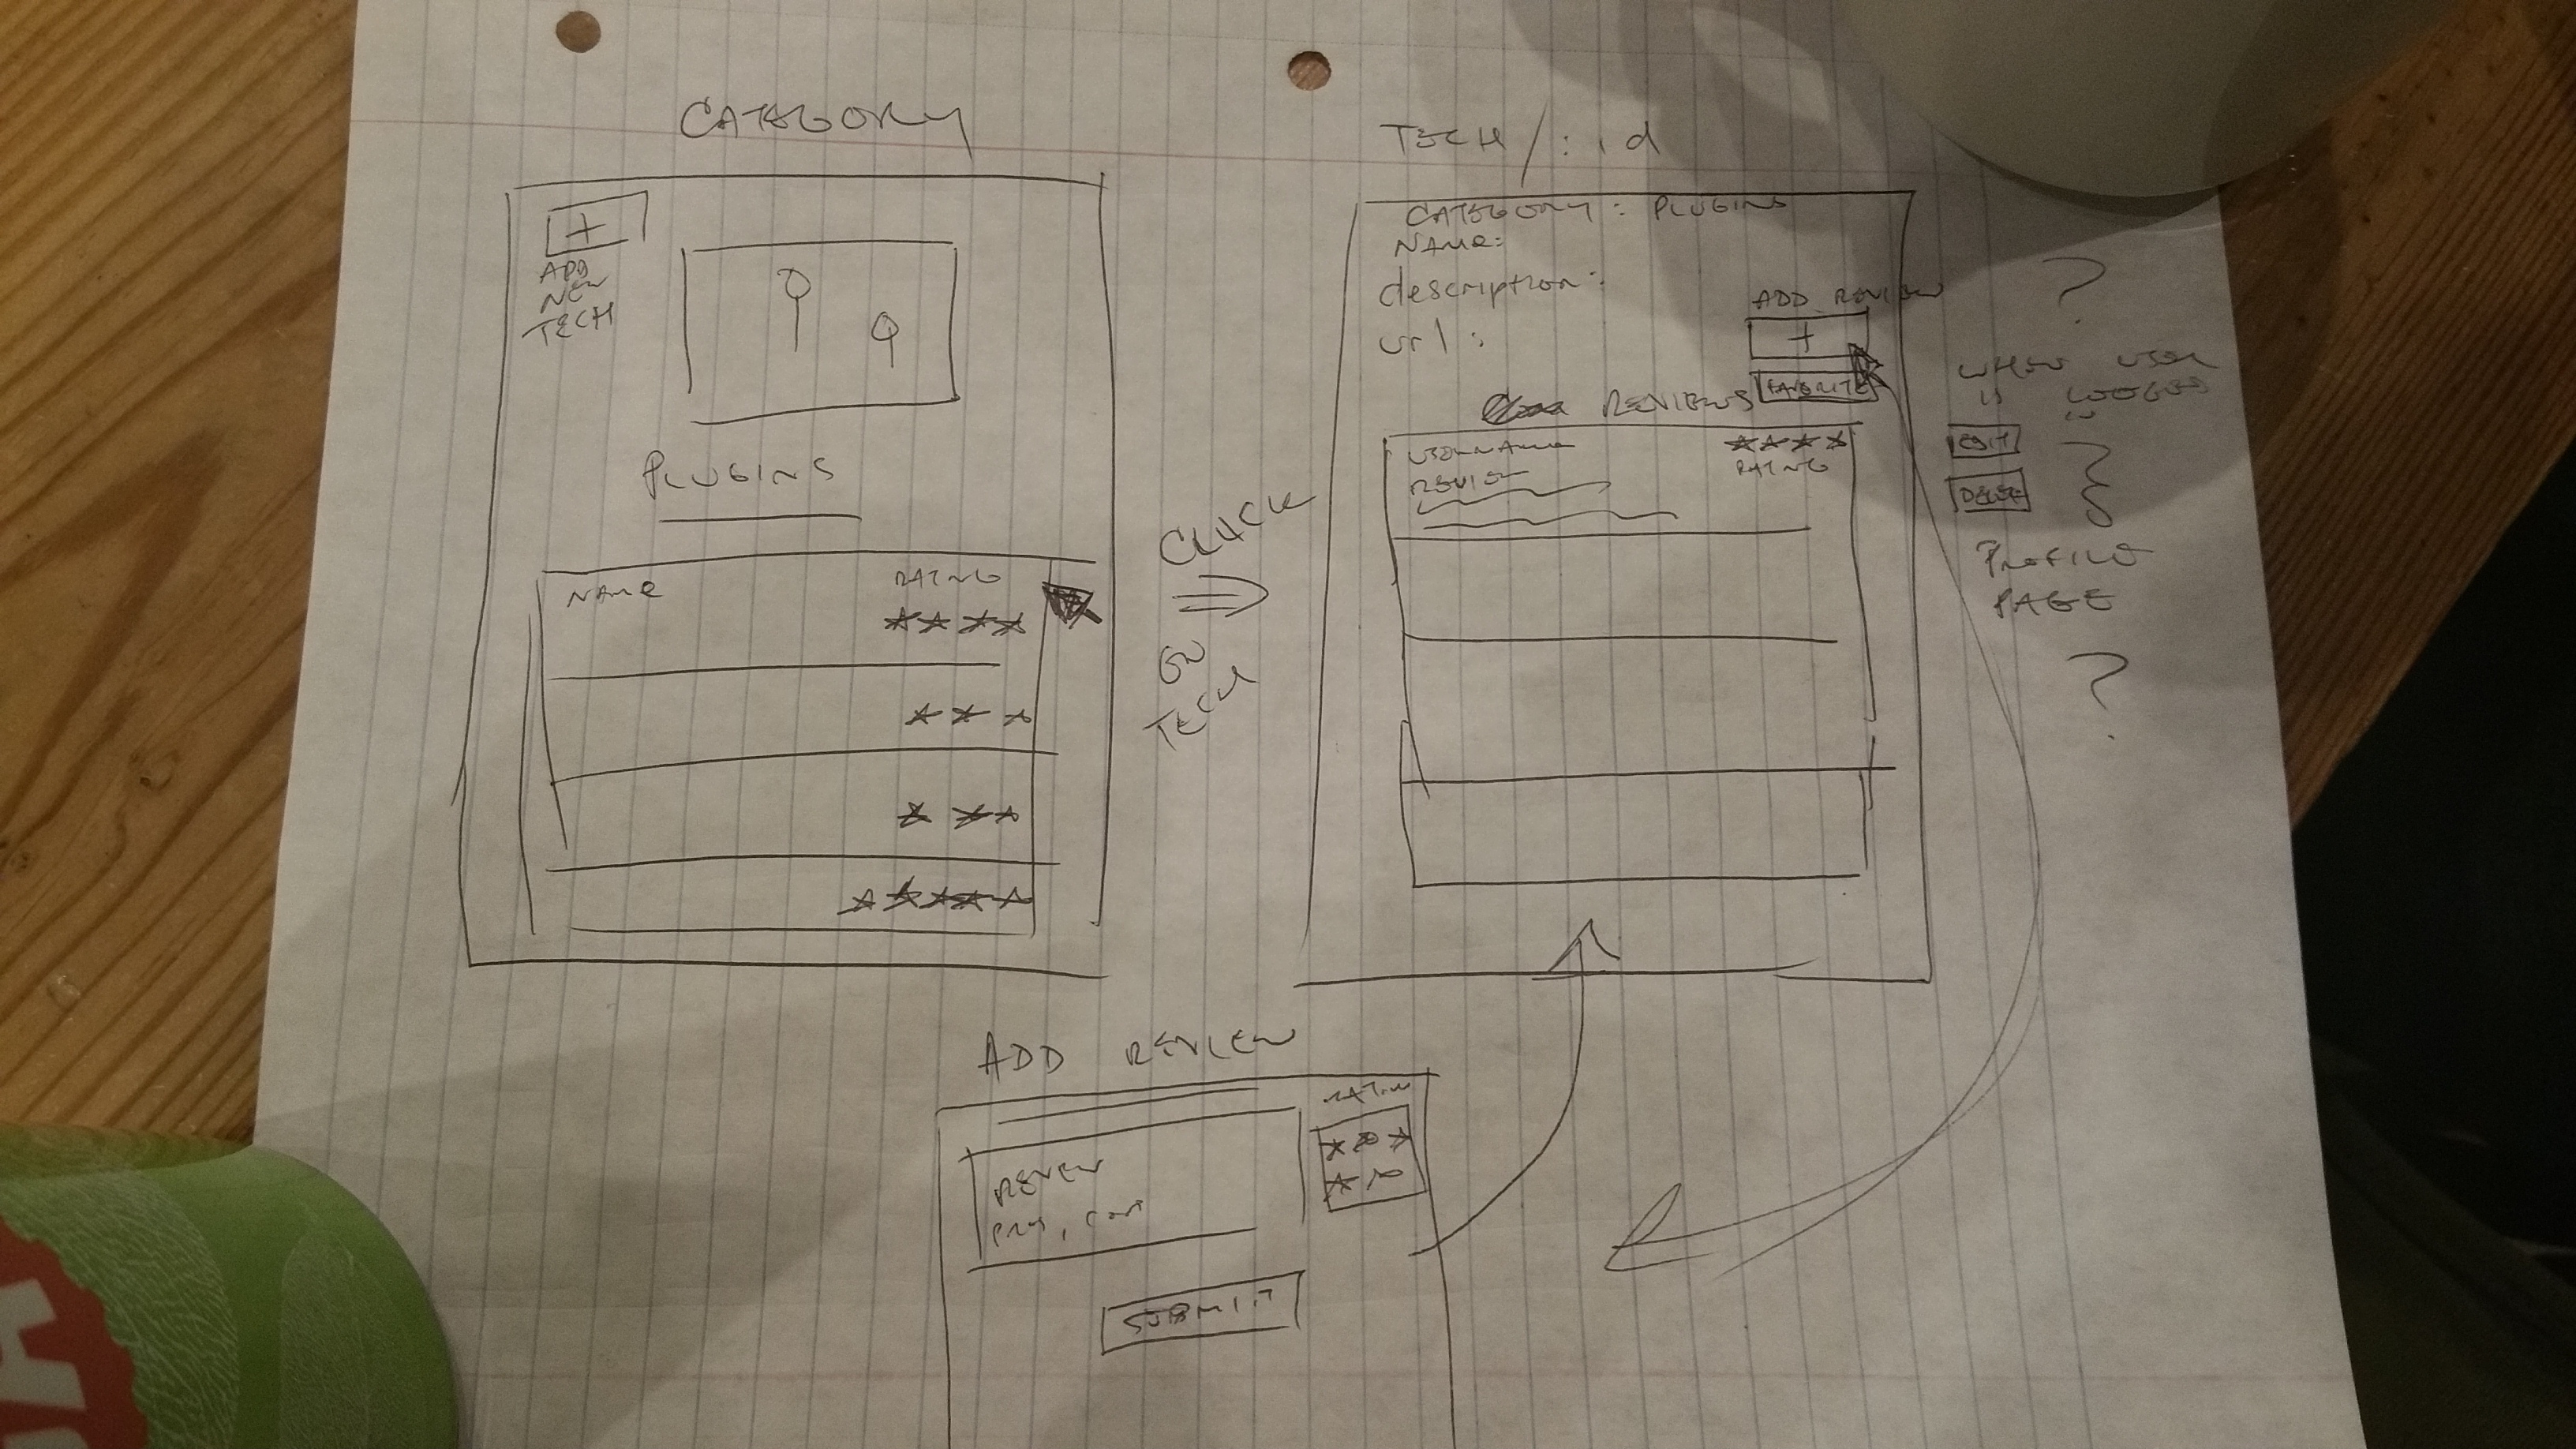 CATEGORY
+
ADD
NEW
TECH
PLUGINS
NAME
RATING
CLICK
GO
TECH
TECH/:id
CATEGORY: PLUGINS
NAME:
description:
url:
ADD REVIEW
+
FAVORITE
REVIEWS
USERNAME
REVIEW
RATING
?
WHEN USER
IS LOGGED
IN
EDIT
DELETE
PROFILE
PAGE
?
ADD REVIEW
RATING
REVIEW
PROS, CONS
SUBMIT